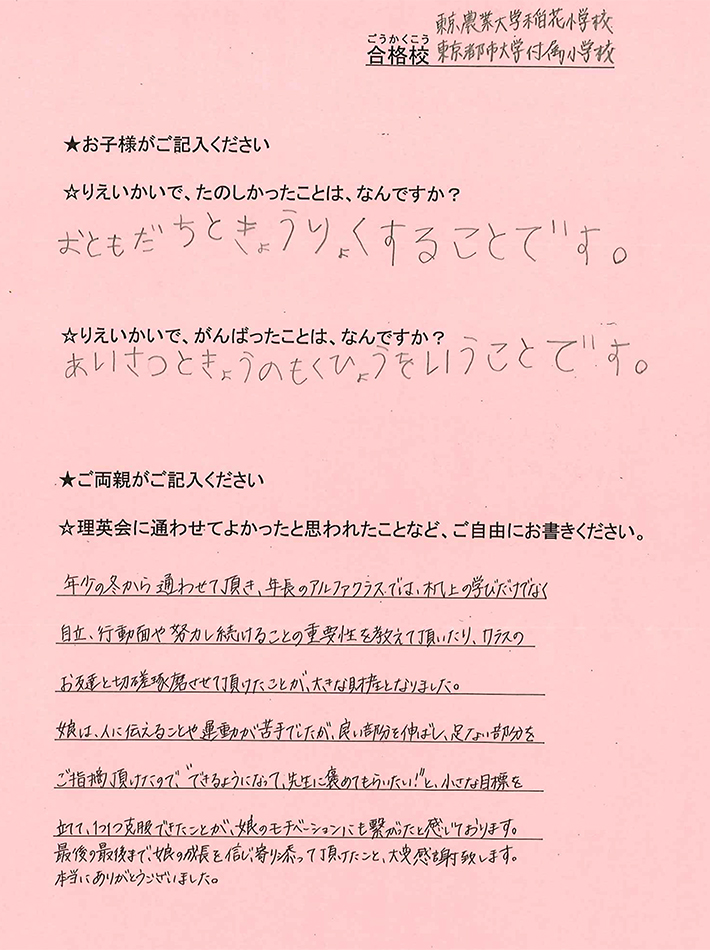 東京農業大学稲花小学校
ごうかくこう
合格校 東京都市大学付属小学校
★お子様がご記入ください
☆りえいかいで、たのしかったことは、なんですか？
おともだちときょうりょくすることです。
☆りえいかいで、がんばったことは、なんですか？
あいさつときょうのもくひょうをいうことです。
★ご両親がご記入ください
☆理英会に通わせてよかったと思われたことなど、ご自由にお書きください。
年少の冬から通わせて頂き、年長のアルファクラスでは、机上の学びだけでなく
自立、行動面や努力し続けることの重要性を教えて頂いたり、クラスの
お友達と切磋琢磨させて頂けたことが、大きな財産となりました。
娘は、人に伝えることや運動が苦手でしたが、良い部分を伸ばし、足ない部分を
ご指摘頂けたので、"できるようになって、先生に褒めてもらいたい!"と、小さな目標を
立て、1つ1つ克服できたことが、娘のモチベーションにも繋がったと感じております。
最後の最後まで、娘の成長を信じ、寄り添って頂けたこと、大変感謝致します。
本当にありがとうございました。